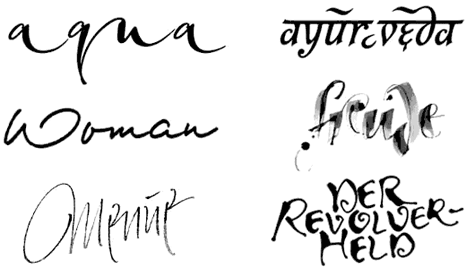 aqua
ayūrvēda
Woman
freude
Omenüe
DER
REVOLVER-
HELD